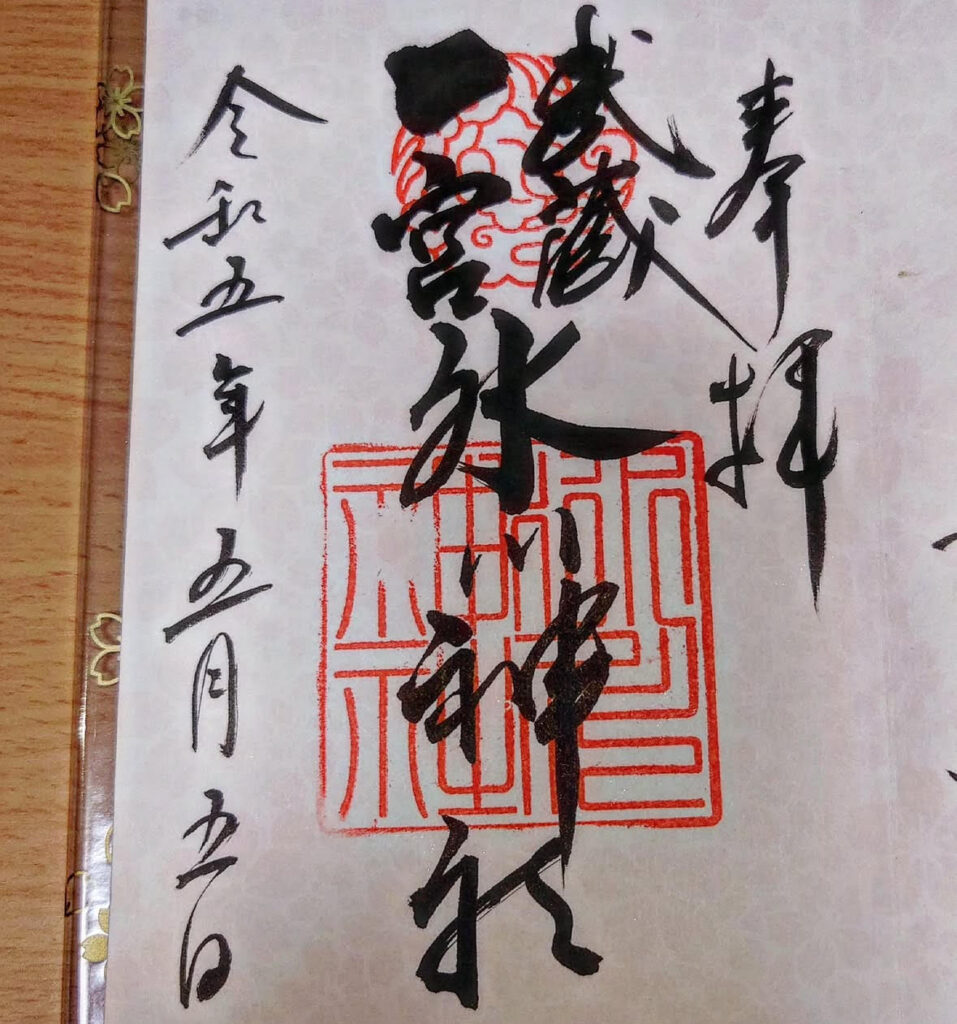 奉拝
武蔵
一宮
氷川神社
令和五年五月五日